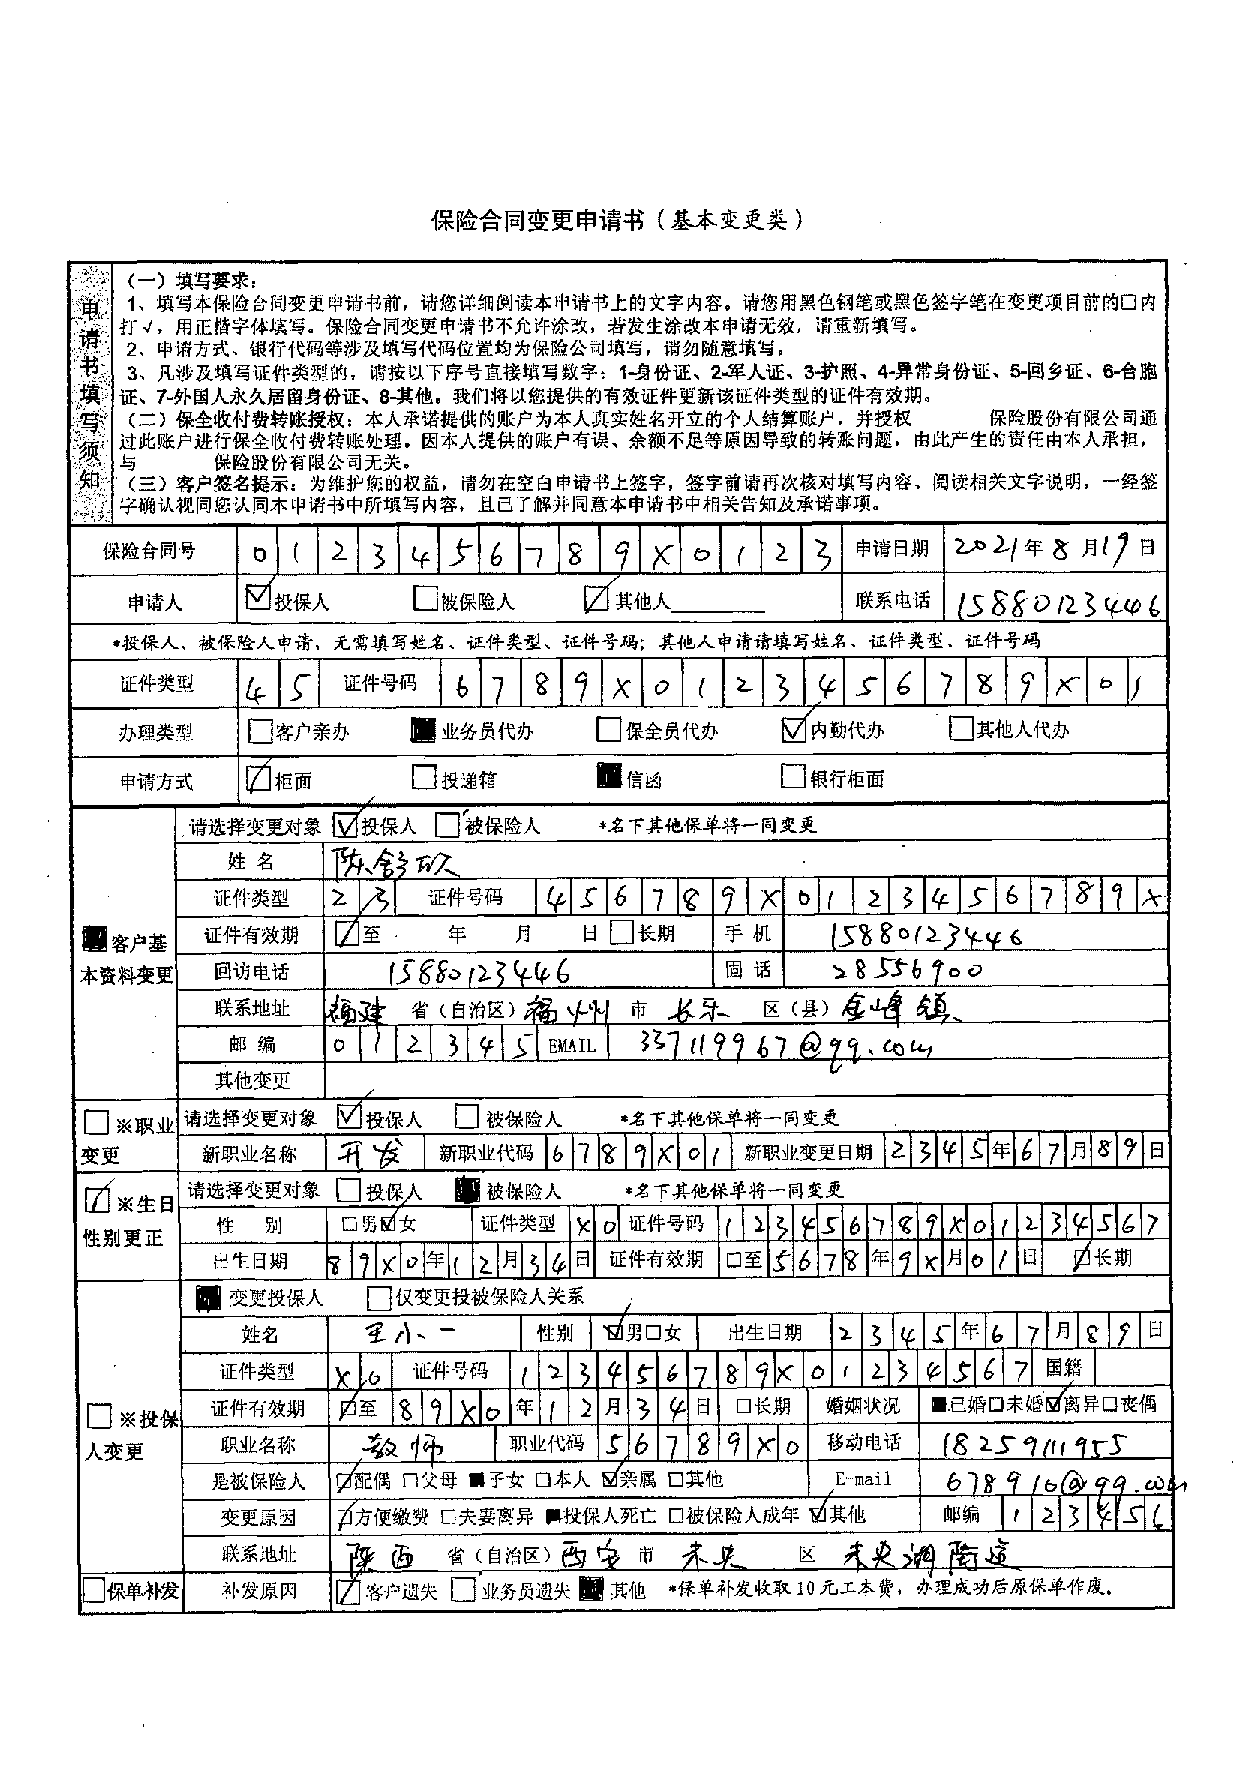 保险合同变更申请书（基本变更类）
申请书填写须知
（一）填写要求：
1、填写本保险合同变更申请书前，请您详细阅读本申请书上的文字内容。请您用黑色钢笔或黑色签字笔在变更项目前的□内
打√，用正楷字体填写。保险合同变更申请书不允许涂改，若发生涂改本申请无效，请重新填写。
2、申请方式、银行代码等涉及填写代码位置均为保险公司填写，请勿随意填写。
3、凡涉及填写证件类型的，请按以下序号直接填写数字：1-身份证、2-军人证、3-护照、4-异常身份证、5-回乡证、6-台胞
证、7-外国人永久居留身份证、8-其他。我们将以您提供的有效证件更新该证件类型的证件有效期。
（二）保全收付费转账授权：本人承诺提供的账户为本人真实姓名开立的个人结算账户，并授权 保险股份有限公司通
过此账户进行保全收付费转账处理。因本人提供的账户有误、余额不足等原因导致的转账问题，由此产生的责任由本人承担，
与 保险股份有限公司无关。
（三）客户签名提示：为维护您的权益，请勿在空白申请书上签字，签字前请再次核对填写内容、阅读相关文字说明，一经签
字确认视同您认同本申请书中所填写内容，且已了解并同意本申请书中相关告知及承诺事项。
保险合同号 0123456789X0123 申请日期 2021年8月19日
申请人 ☑投保人 □被保险人 ☑其他人 联系电话 15880123446
*投保人、被保险人申请，无需填写姓名、证件类型、证件号码；其他人申请请填写姓名、证件类型、证件号码
证件类型 45 证件号码 6789X0123456789X01
办理类型 □客户亲办 ■业务员代办 □保全员代办 ☑内勤代办 □其他人代办
申请方式 ☑柜面 □投递箱 ■信函 □银行柜面
■客户基本资料变更
请选择变更对象 ☑投保人 □被保险人 *名下其他保单将一同变更
姓名
证件类型 23 证件号码 456789X0123456789X
证件有效期 ☑至 年 月 日 □长期 手机 15880123446
回访电话 15880123446 固话 28556900
联系地址 福建 省（自治区）福州 市 长乐 区（县）金峰镇
邮编 012345 EMAIL 337119967@qq.com
其他变更
□※职业变更
请选择变更对象 ☑投保人 □被保险人 *名下其他保单将一同变更
新职业名称 开发 新职业代码 6789X01 新职业变更日期 2345年67月89日
☑※生日性别更正
请选择变更对象 □投保人 ■被保险人 *名下其他保单将一同变更
性别 □男☑女 证件类型 X0 证件号码 123456789X01234567
出生日期 89X0年12月34日 证件有效期 □至5678年9X月01日 ☑长期
□※投保人变更
■变更投保人 □仅变更投被保险人关系
姓名 王小一 性别 ☑男□女 出生日期 2345年67月89日
证件类型 X0 证件号码 123456789X01234567 国籍
证件有效期 ☑至 89X0年12月34日 □长期 婚姻状况 ■已婚□未婚☑离异□丧偶
职业名称 教师 职业代码 56789X0 移动电话 18259111955
是被保险人 ☑配偶 □父母 ■子女 □本人 ☑亲属 □其他 E-mail 678910@qq.com
变更原因 ☑方便缴费 □夫妻离异 ■投保人死亡 □被保险人成年 ☑其他 邮编 123456
联系地址 陕西 省（自治区）西安 市 未央 区 未央湖街道
□保单补发 补发原因 ☑客户遗失 □业务员遗失 ■其他 *保单补发收取10元工本费，办理成功后原保单作废。